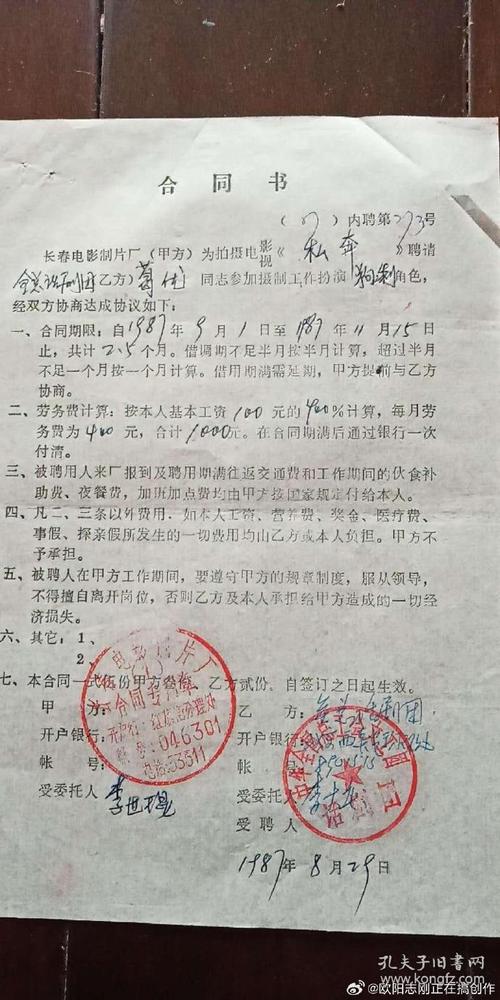 合同书
(87)内聘第273号
长春电影制片厂（甲方）为拍摄电影视《私奔》聘请
全总话剧团乙方）葛优同志参加摄制工作扮演角色，
经双方协商达成协议如下：
一、合同期限：自1987年9月1日至1987年11月15日
止，共计2.5个月。借调期不足半月按半月计算，超过半月
不足一个月按一个月计算。借用期满需延期，甲方提前与乙方
协商。
二、劳务费计算：按本人基本工资100元的400%计算，每月劳
务费为400元，合计1000元。在合同期满后通过银行一次
付清。
三、被聘用人来厂报到及聘用期满往返交通费和工作期间的伙食补
助费、夜餐费，加班加点费均由甲方按国家规定付给本人。
四、凡二、三条以外费用．如本人工资、营养费、奖金、医疗费、
事假、探亲假所发生的一切费用均由乙方或本人负担。甲方不
予承担。
五、被聘人在甲方工作期间，要遵守甲方的规章制度，服从领导，
不得擅自离开岗位，否则乙方及本人承担给甲方造成的一切经
济损失。
六、其它：1、
2、
七、本合同一式伍份甲方叁份，乙方贰份，自签订之日起生效。
甲方：
开户银行：
帐号：
受委托人
电影制片厂
合同专用章
开户行：
帐号：046301
电话：53511
乙方：全总话剧团
开户银行：
帐号：
受委托人
受聘人
中华全国总工会
话剧团
1987年8月29日
孔夫子旧书网
www.kongfz.com
@欧阳志刚正在搞创作